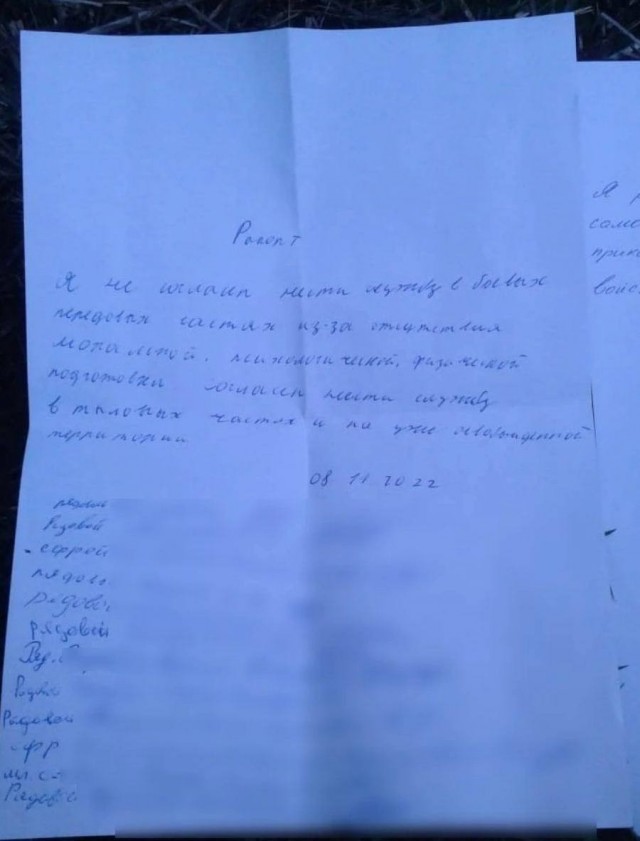 Рапорт
Я не согласен нести службу в боевых
передовых частях из-за отсутствия
моральной, психологической, физической
подготовки согласен нести службу
в тыловых частях и на уже освобожденной
территории
08 11 2022
Рядовой
ефрей
рядовой
рядовой
Ряд.
Рядово
Рядовой
ефр
мл. с
Рядово
Я
само
прика
войс